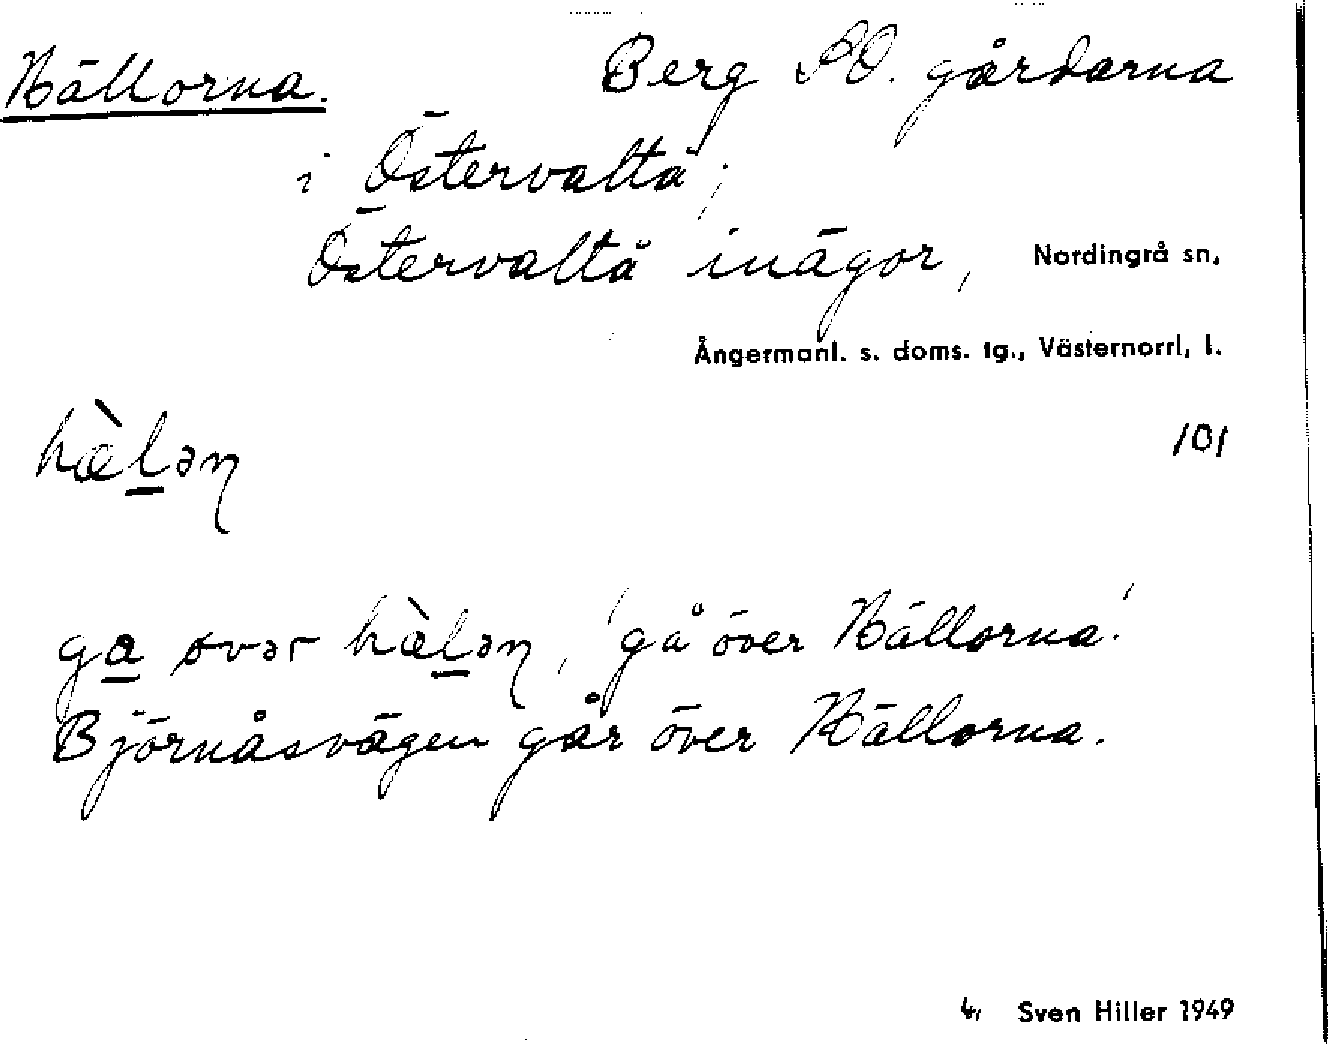 Hällorna. Berg SO. gårdarna
i Östervaltå;
Östervaltå inägor, Nordingrå sn,
Ångermanl. s. doms. tg., Västernorrl, l.
hæ̀l̲əƞ 101
ga̲ øvər hæ̀l̲əƞ, 'gå över Hällorna.'
Björnåsvägen går över Hällorna.
4, Sven Hiller 1949